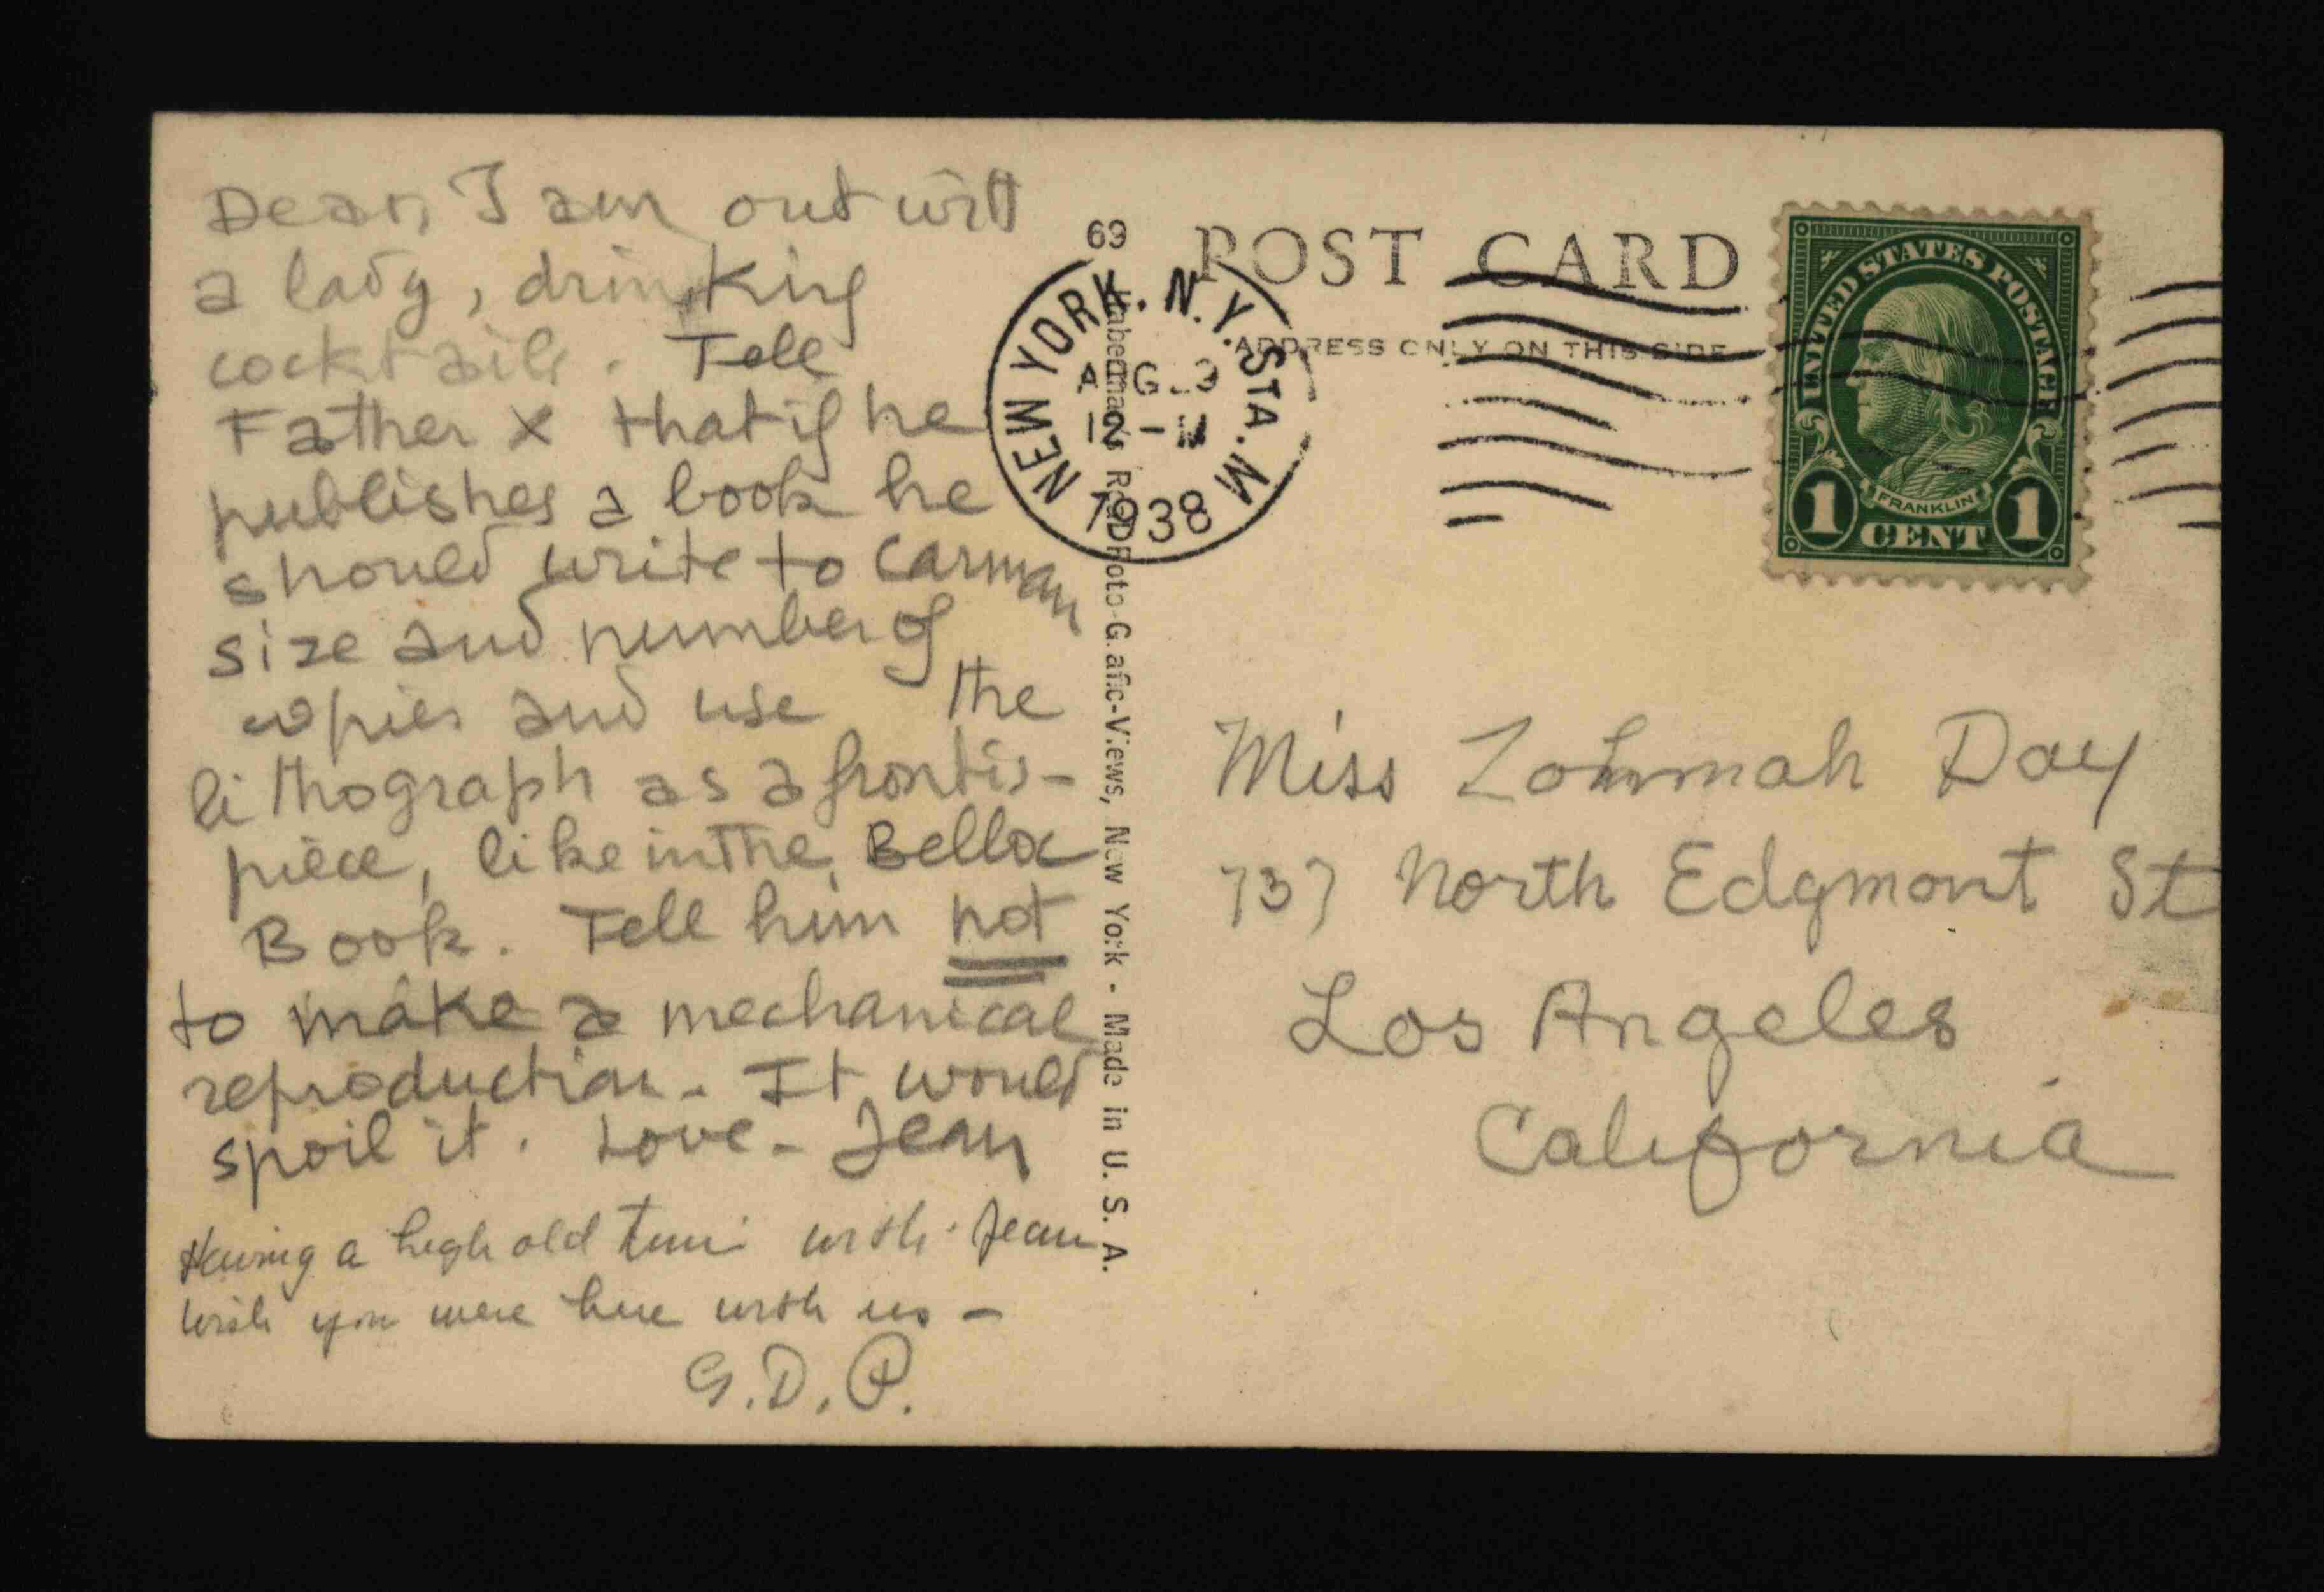 Dear, I am out with
a lady, drinking
cocktails. Tell
Father x that if he
publishes a book he
should write to Carman
size and number of
copies and use the
lithograph as a frontis-
piece, like in the Belloc
Book. Tell him not
to make a mechanical
reproduction. It would
spoil it. Love - Jean
Having a high old time with Jean
Wish you were here with us -
G.D.P.
69
Real Foto-Grafic-Views, New York - Made in U. S. A.
POST CARD
ADDRESS ONLY ON THIS SIDE
NEW YORK, N.Y. STA. M
12-M
1938
UNITED STATES POSTAGE
FRANKLIN
1 CENT 1
Miss Zohmah Day
737 North Edgmont St
Los Angeles
California